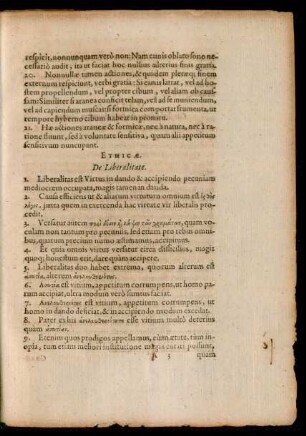 respicit, nonnunquam verò non: Nam canis oblato sono ne-
cessariò audit, ita ut faciat hoc nullius alterius finis gratiâ.
20. Non nullæ tamen actiones, & quidem pleræq; finem
externum respiciunt, verbi gratiâ: Si canis latrat, vel ad ho-
stem propellendum, vel propter cibum, vel aliam ob cau-
sam: Similiter si aranea conficit telam, vel ad se muniendum,
vel ad capiendum muscas: si formica comportat frumenta, ut
tempore hyberno cibum habeat in promtu.
21. Hæ actiones araneæ & formicæ, nec à natura, nec à ra-
tione fiunt, sed à voluntate sensitiva, quam alii appetitum
sensitivum nuncupant.
ETHICÆ.
De Liberalitate.
1. Liberalitas est Virtus in dando & accipiendo pecuniam
mediocrem occupata, magis tamen in danda.
2. Causa efficiens ut & aliarum virtutum omnium est
juxta quem in exercenda hac virtute vir liberalis pro-
cedit.
3. Versatur autem quam vo-
culam non tantum pro pecuniis, sed etiam pro rebus omni-
bus, quarum precium numo æstimamus, accipimus.
4. Et quia omnis virtus versatur circa difficilius, magis
quoq; honestius erit, dare quàm accipere.
5. Liberalitas duo habet extrema, quorum alterum est
alterum
6. est vitium, appetitum corrumpens, ut homo pa-
rum accipiat, ultra modum verò sumtus faciat.
7. est vitium, appetitum corrumpens, ut
homo in dando deficiat, & in accipiendo modum excedat.
8. Patet ex his esse vitium multò deterius
quàm
9. Etenim quos prodigos appellamus, cùm ætate, tùm in-
opia, tum etiam meliori institutione magis curari possunt,
3 quam